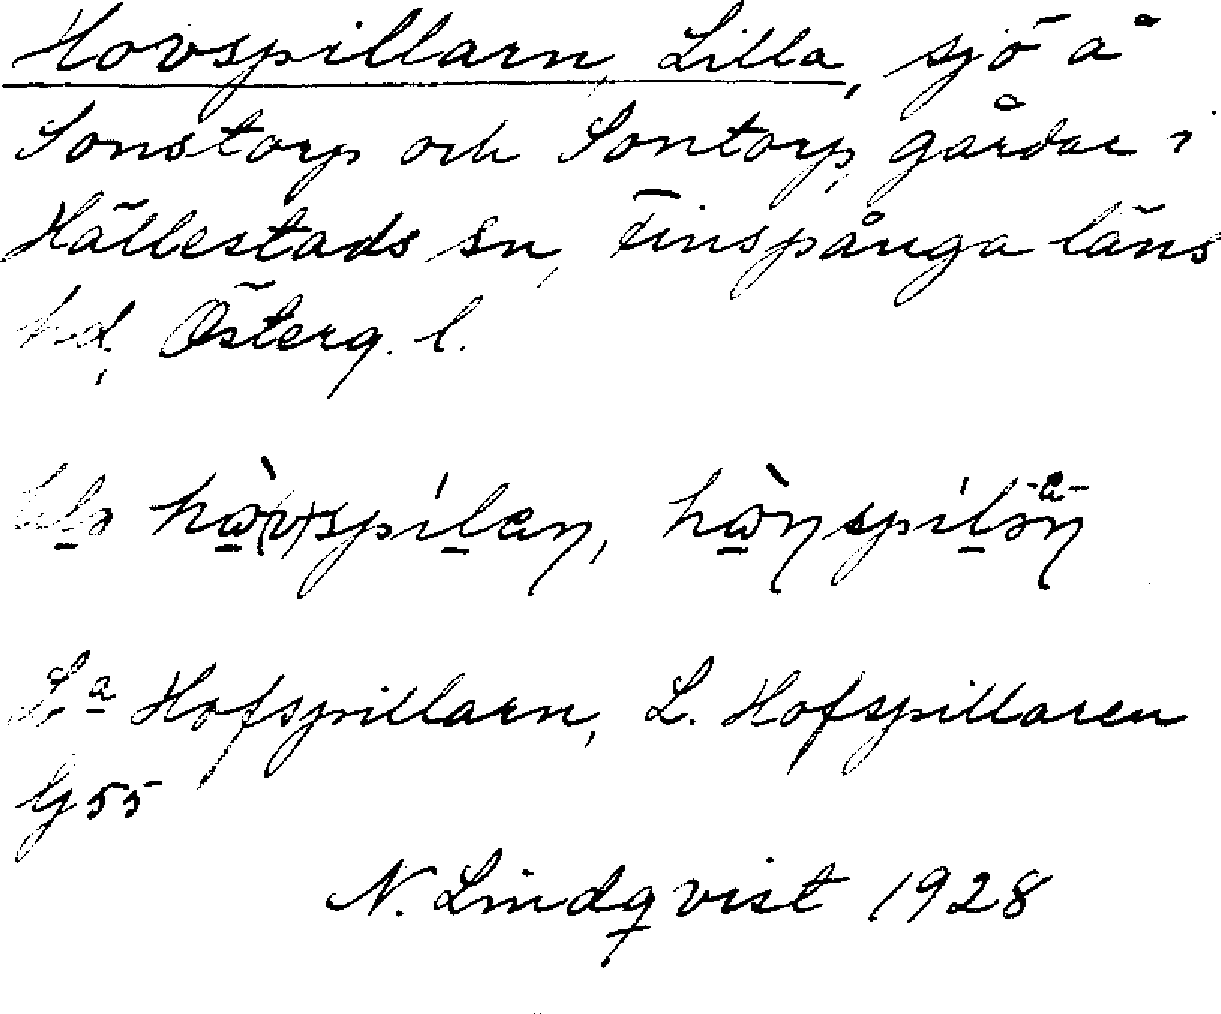 Hovspillarn, Lilla, sjö å
Sonstorp och Sontorp, gårdar i
Hällestads sn, Finspånga läns
hd, Österg. l.
hò̱(v)spíḻaꞑ, hò̱ꞑspíḻəꞑ -a-
La Hofspillarn, L. Hofspillaren
G55
N. Lindqvist 1928